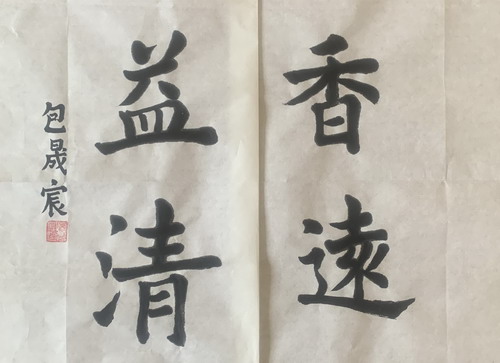 香遠
益清
包晟宸